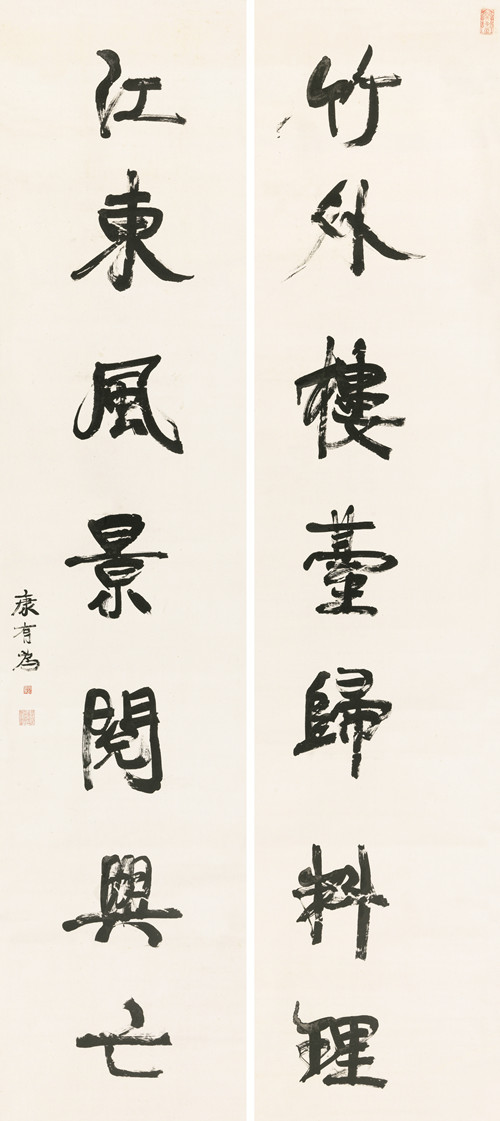 竹外樓臺歸料理
江東風景閱興亡
康有為